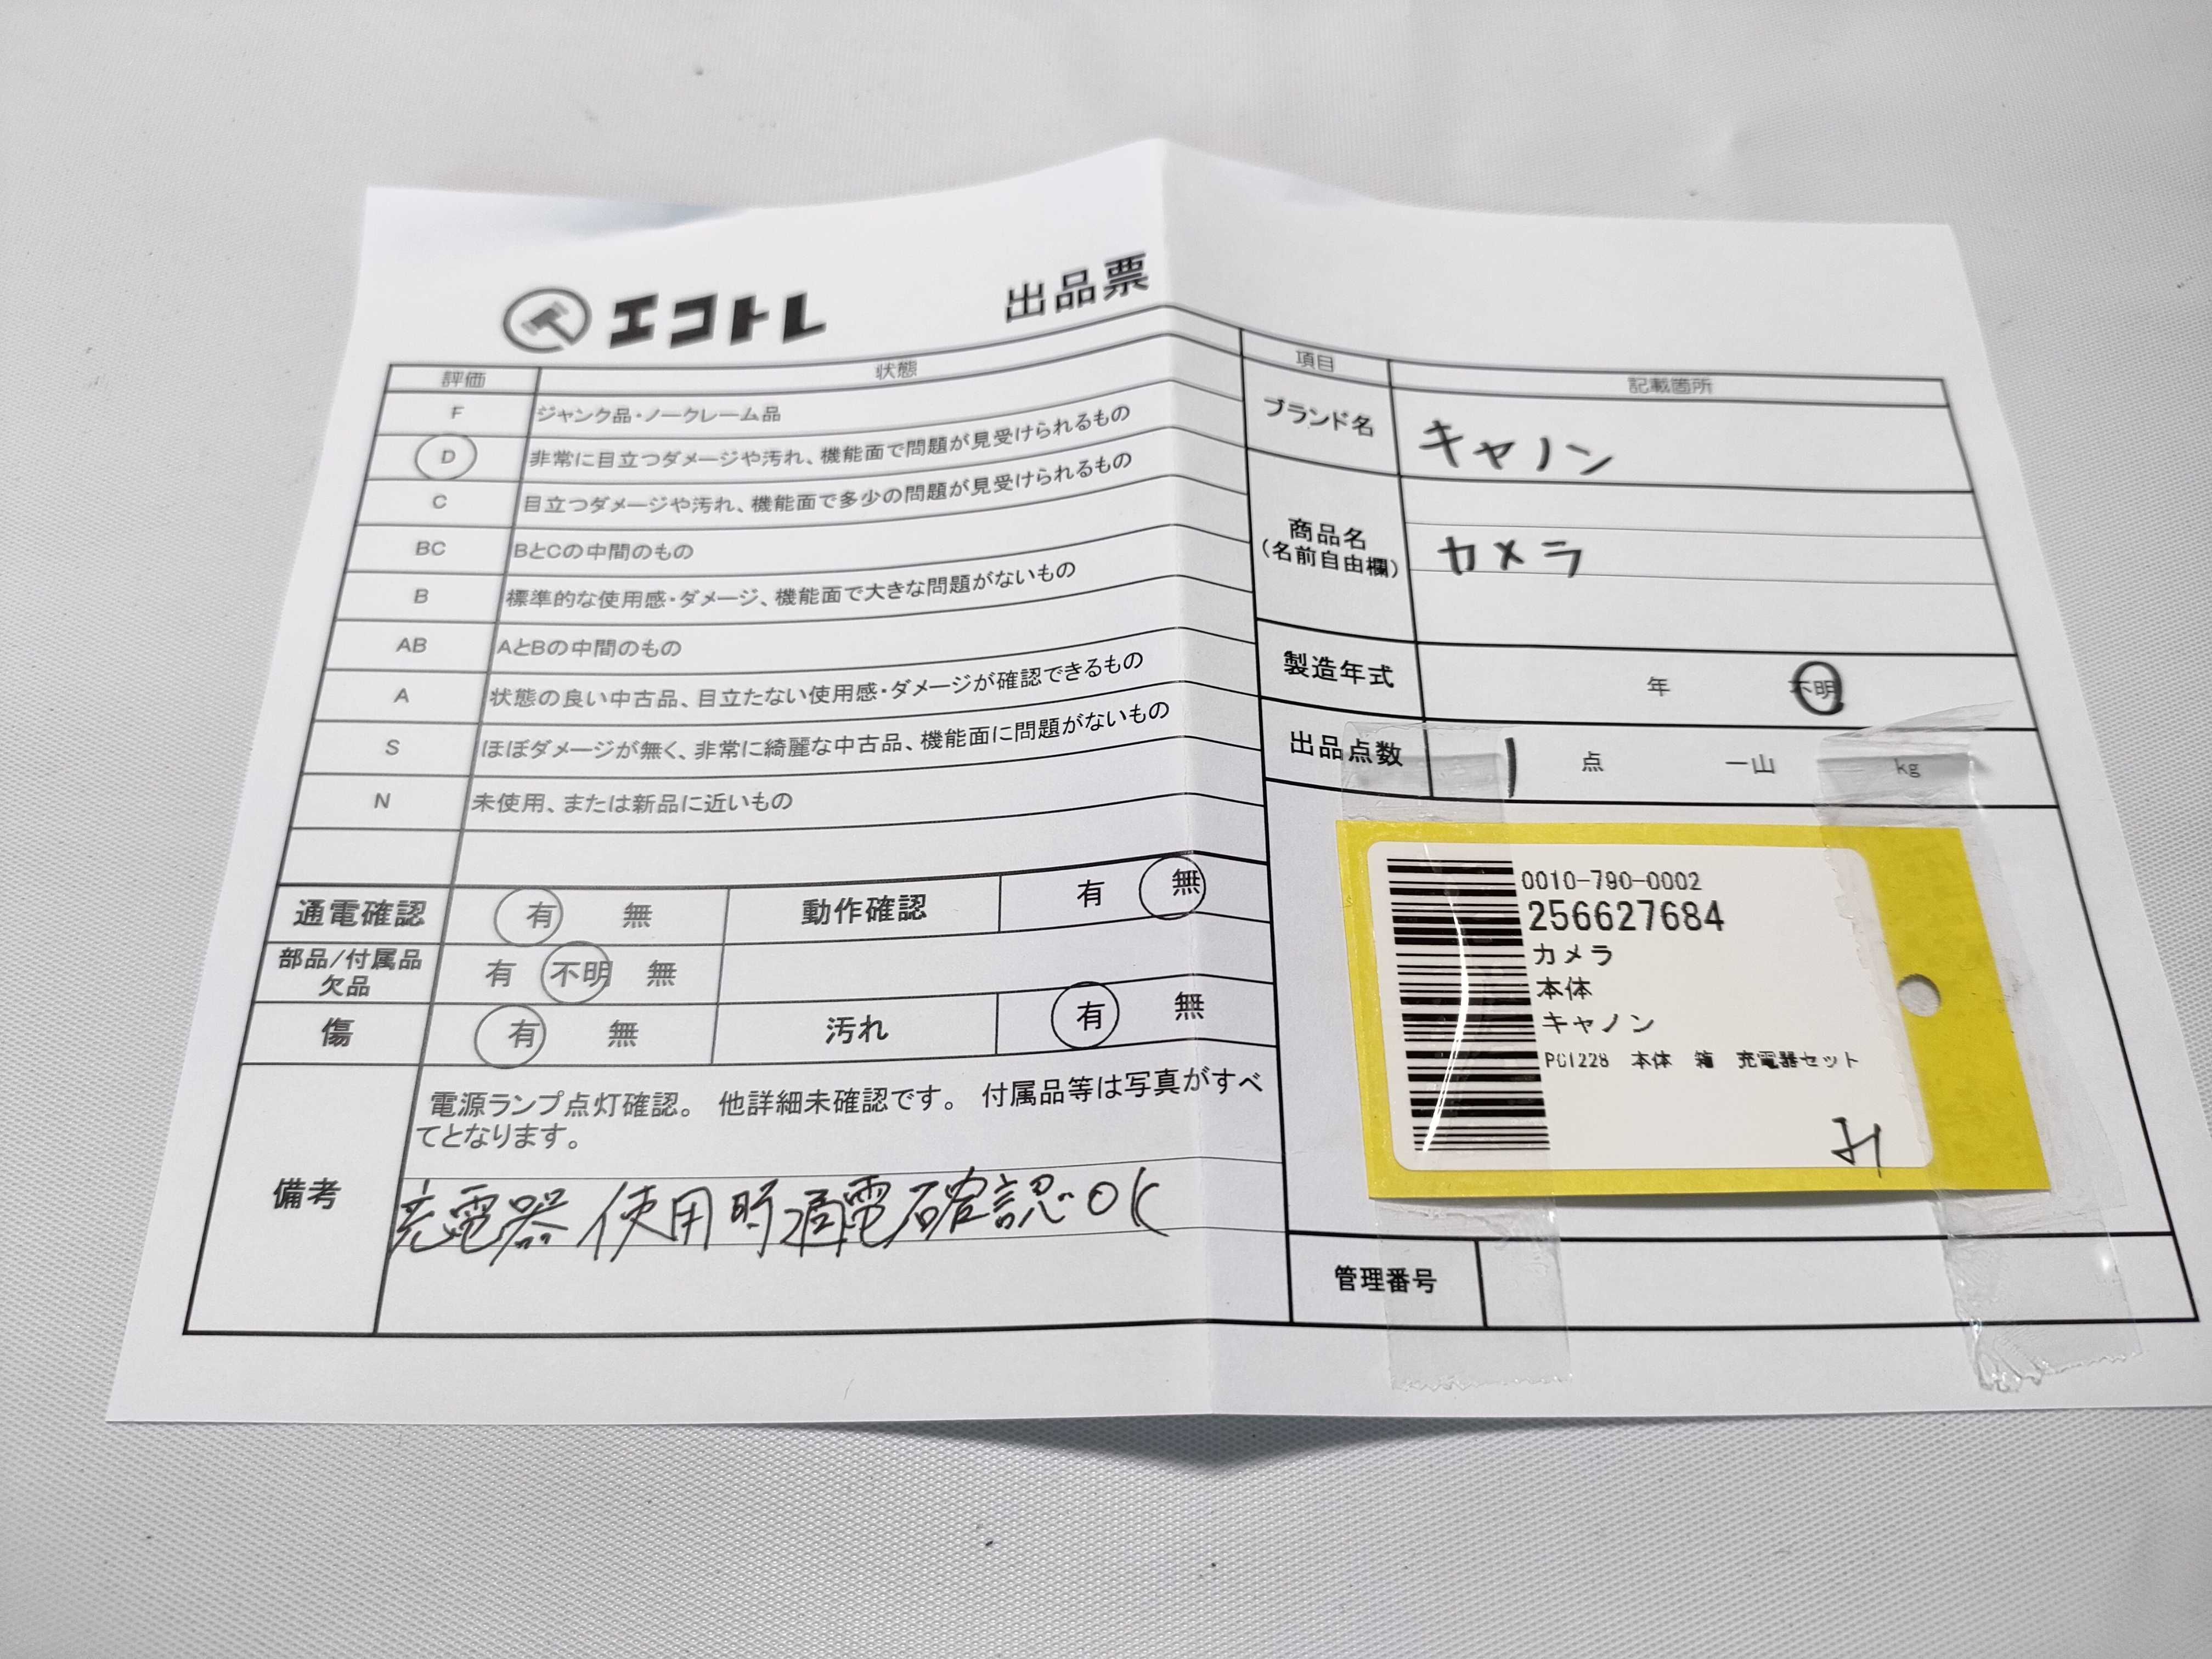 エコトレ
出品票
評価 状態
F ジャンク品・ノークレーム品
D 非常に目立つダメージや汚れ、機能面で問題が見受けられるもの
C 目立つダメージや汚れ、機能面で多少の問題が見受けられるもの
BC BとCの中間のもの
B 標準的な使用感・ダメージ、機能面で大きな問題がないもの
AB AとBの中間のもの
A 状態の良い中古品、目立たない使用感・ダメージが確認できるもの
S ほぼダメージが無く、非常に綺麗な中古品、機能面に問題がないもの
N 未使用、または新品に近いもの
通電確認 有 無 動作確認 有 無
部品/付属品
欠品 有 不明 無
傷 有 無 汚れ 有 無
備考
電源ランプ点灯確認。 他詳細未確認です。 付属品等は写真がすべ
てとなります。
充電器使用時通電確認OK
項目 記載箇所
ブランド名 キャノン
商品名
(名前自由欄)
カメラ
製造年式 年 不明
出品点数 1 点 一山 kg
0010-790-0002
256627684
カメラ
本体
キャノン
PC1228 本体 箱 充電器セット
管理番号